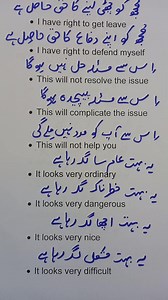 مجھ کو چھٹی لینے کا حق حاصل ہے
• I have right to get leave
مجھ کو اپنے دفاع کا حق حاصل ہے
• I have right to defend myself
اس سے مسئلہ حل نہیں ہوگا
• This will not resolve the issue
اس سے مسئلہ پیچیدہ ہوگا
• This will complicate the issue
اس سے آپ کو مدد نہیں ملے گی
• This will not help you
یہ بہت عام سا لگ رہا ہے
• It looks very ordinary
یہ بہت خطرناک لگ رہا ہے
• It looks very dangerous
یہ بہت اچھا لگ رہا ہے
• It looks very nice
یہ بہت مشکل لگ رہا ہے
• It looks very difficult